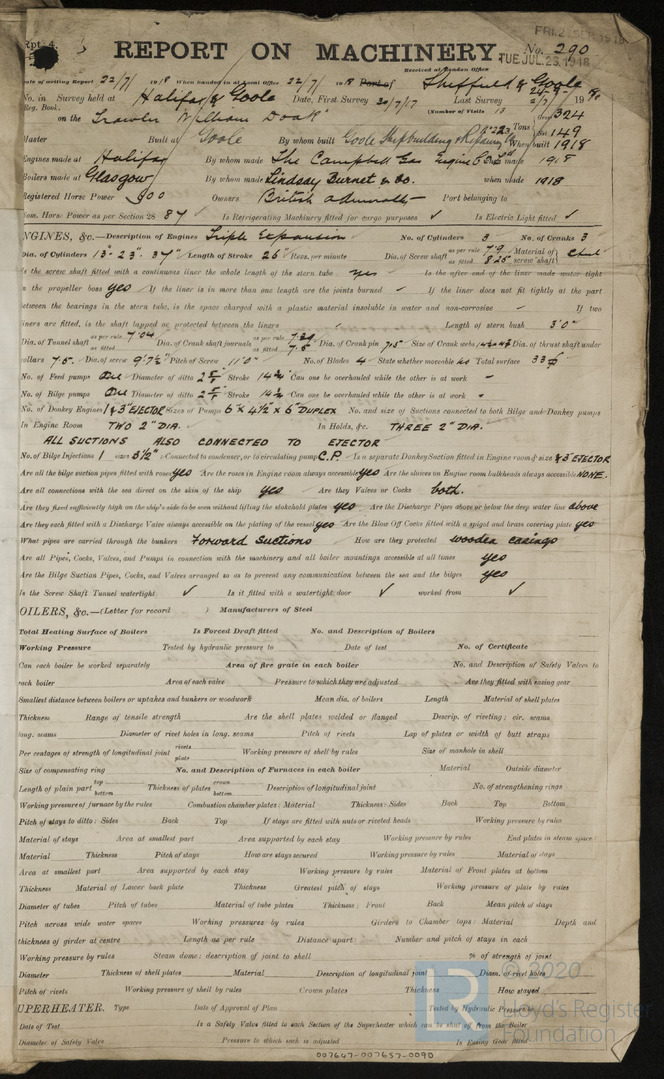 Rpt. 4.
REPORT ON MACHINERY.
No. 290
FRI. 27 SEP 1918
TUE. JUL. 23. 1918
Received at London Office
Date of writing Report 22/7/ 1918 When handed in at Local Office 22/7/ 1918 Port of Sheffield & Goole
No. in Survey held at Halifax & Goole Date, First Survey 30/7/17 Last Survey 2/7/ 1918
Reg. Book. (Number of Visits 13
on the Trawler William Doak Tons Gross 324 Net 149
Master Built at Goole By whom built Goole Shipbuilding & Repairing Co. When built 1918
Engines made at Halifax By whom made The Campbell Gas Engine Co Ltd when made 1918
Boilers made at Glasgow By whom made Lindsay Burnet & Co. when made 1918
Registered Horse Power Owners British Admiralty Port belonging to
Nom. Horse Power as per Section 28 87 Is Refrigerating Machinery fitted for cargo purposes ✓ Is Electric Light fitted ✓
ENGINES, &c.—Description of Engines Triple Expansion No. of Cylinders 3 No. of Cranks 3
Dia. of Cylinders 13"- 23"- 37" Length of Stroke 26" Revs. per minute Dia. of Screw shaft as per rule 7.9 as fitted 8.25 Material of screw shaft Steel
Is the screw shaft fitted with a continuous liner the whole length of the stern tube yes Is the after end of the liner made water tight
in the propeller boss yes If the liner is in more than one length are the joints burned – If the liner does not fit tightly at the part
between the bearings in the stern tube, is the space charged with a plastic material insoluble in water and non-corrosive – If two
liners are fitted, is the shaft lapped or protected between the liners – Length of stern bush 3'0"
Dia. of Tunnel shaft as per rule 7.04 as fitted Dia. of Crank shaft journals as per rule 7.39 as fitted 7.5 Dia. of Crank pin 7.5 Size of Crank webs Dia. of thrust shaft under
collars 7.5 Dia. of screw 9'7½" Pitch of Screw 11'0" No. of Blades 4 State whether moveable no Total surface 33
No. of Feed pumps One Diameter of ditto Stroke 14¼ Can one be overhauled while the other is at work –
No. of Bilge pumps One Diameter of ditto Stroke 14¼ Can one be overhauled while the other is at work –
No. of Donkey Engines 1 & 3" EJECTOR Sizes of Pumps 6 x 4½ x 6" DUPLEX No. and size of Suctions connected to both Bilge and Donkey pumps
In Engine Room TWO 2" DIA. In Holds, &c. THREE 2" DIA.
ALL SUCTIONS ALSO CONNECTED TO EJECTOR
No. of Bilge Injections 1 sizes 3½" Connected to condenser, or to circulating pump C.P. Is a separate Donkey Suction fitted in Engine room & size & 3" EJECTOR
Are all the bilge suction pipes fitted with roses yes Are the roses in Engine room always accessible yes Are the sluices on Engine room bulkheads always accessible NONE.
Are all connections with the sea direct on the skin of the ship yes Are they Valves or Cocks both.
Are they fixed sufficiently high on the ship's side to be seen without lifting the stokehold plates yes Are the Discharge Pipes above or below the deep water line above
Are they each fitted with a Discharge Valve always accessible on the plating of the vessel yes Are the Blow Off Cocks fitted with a spigot and brass covering plate yes
What pipes are carried through the bunkers Forward Suctions How are they protected wooden casings
Are all Pipes, Cocks, Valves, and Pumps in connection with the machinery and all boiler mountings accessible at all times yes
Are the Bilge Suction Pipes, Cocks, and Valves arranged so as to prevent any communication between the sea and the bilges yes
Is the Screw Shaft Tunnel watertight ✓ Is it fitted with a watertight door ✓ worked from ✓
OILERS, &c.—(Letter for record ) Manufacturers of Steel
Total Heating Surface of Boilers Is Forced Draft fitted No. and Description of Boilers
Working Pressure Tested by hydraulic pressure to Date of test No. of Certificate
Can each boiler be worked separately Area of fire grate in each boiler No. and Description of Safety Valves to
each boiler Area of each valve Pressure to which they are adjusted Are they fitted with easing gear
Smallest distance between boilers or uptakes and bunkers or woodwork Mean dia. of boilers Length Material of shell plates
Thickness Range of tensile strength Are the shell plates welded or flanged Descrip. of riveting: cir. seams
long. seams Diameter of rivet holes in long. seams Pitch of rivets Lap of plates or width of butt straps
Per centages of strength of longitudinal joint rivets plate Working pressure of shell by rules Size of manhole in shell
Size of compensating ring No. and Description of Furnaces in each boiler Material Outside diameter
Length of plain part top bottom Thickness of plates crown bottom Description of longitudinal joint No. of strengthening rings
Working pressure of furnace by the rules Combustion chamber plates: Material Thickness: Sides Back Top Bottom
Pitch of stays to ditto: Sides Back Top If stays are fitted with nuts or riveted heads Working pressure by rules
Material of stays Area at smallest part Area supported by each stay Working pressure by rules End plates in steam space:
Material Thickness Pitch of stays How are stays secured Working pressure by rules Material of stays
Area at smallest part Area supported by each stay Working pressure by rules Material of Front plates at bottom
Thickness Material of Lower back plate Thickness Greatest pitch of stays Working pressure of plate by rules
Diameter of tubes Pitch of tubes Material of tube plates Thickness: Front Back Mean pitch of stays
Pitch across wide water spaces Working pressures by rules Girders to Chamber tops: Material Depth and
thickness of girder at centre Length as per rule Distance apart Number and pitch of stays in each
Working pressure by rules Steam dome: description of joint to shell % of strength of joint
Diameter Thickness of shell plates Material Description of longitudinal joint Diam. of rivet holes
Pitch of rivets Working pressure of shell by rules Crown plates Thickness How stayed
UPERHEATER. Type Date of Approval of Plan Tested by Hydraulic Pressure to
Date of Test Is a Safety Valve fitted to each Section of the Superheater which can be shut off from the Boiler
Diameter of Safety Valve Pressure to which each is adjusted Is Easing Gear fitted
007647-007657-0090
© 2020
Lloyd's Register
Foundation